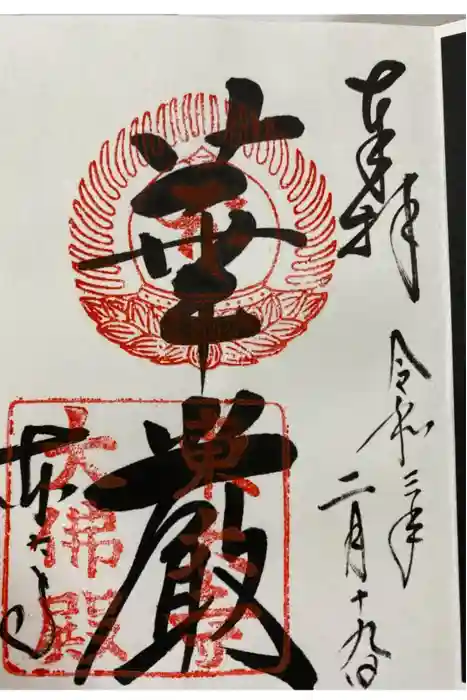 奉拝
令和三年
二月十九日
華厳
東大寺
大佛殿
東大寺